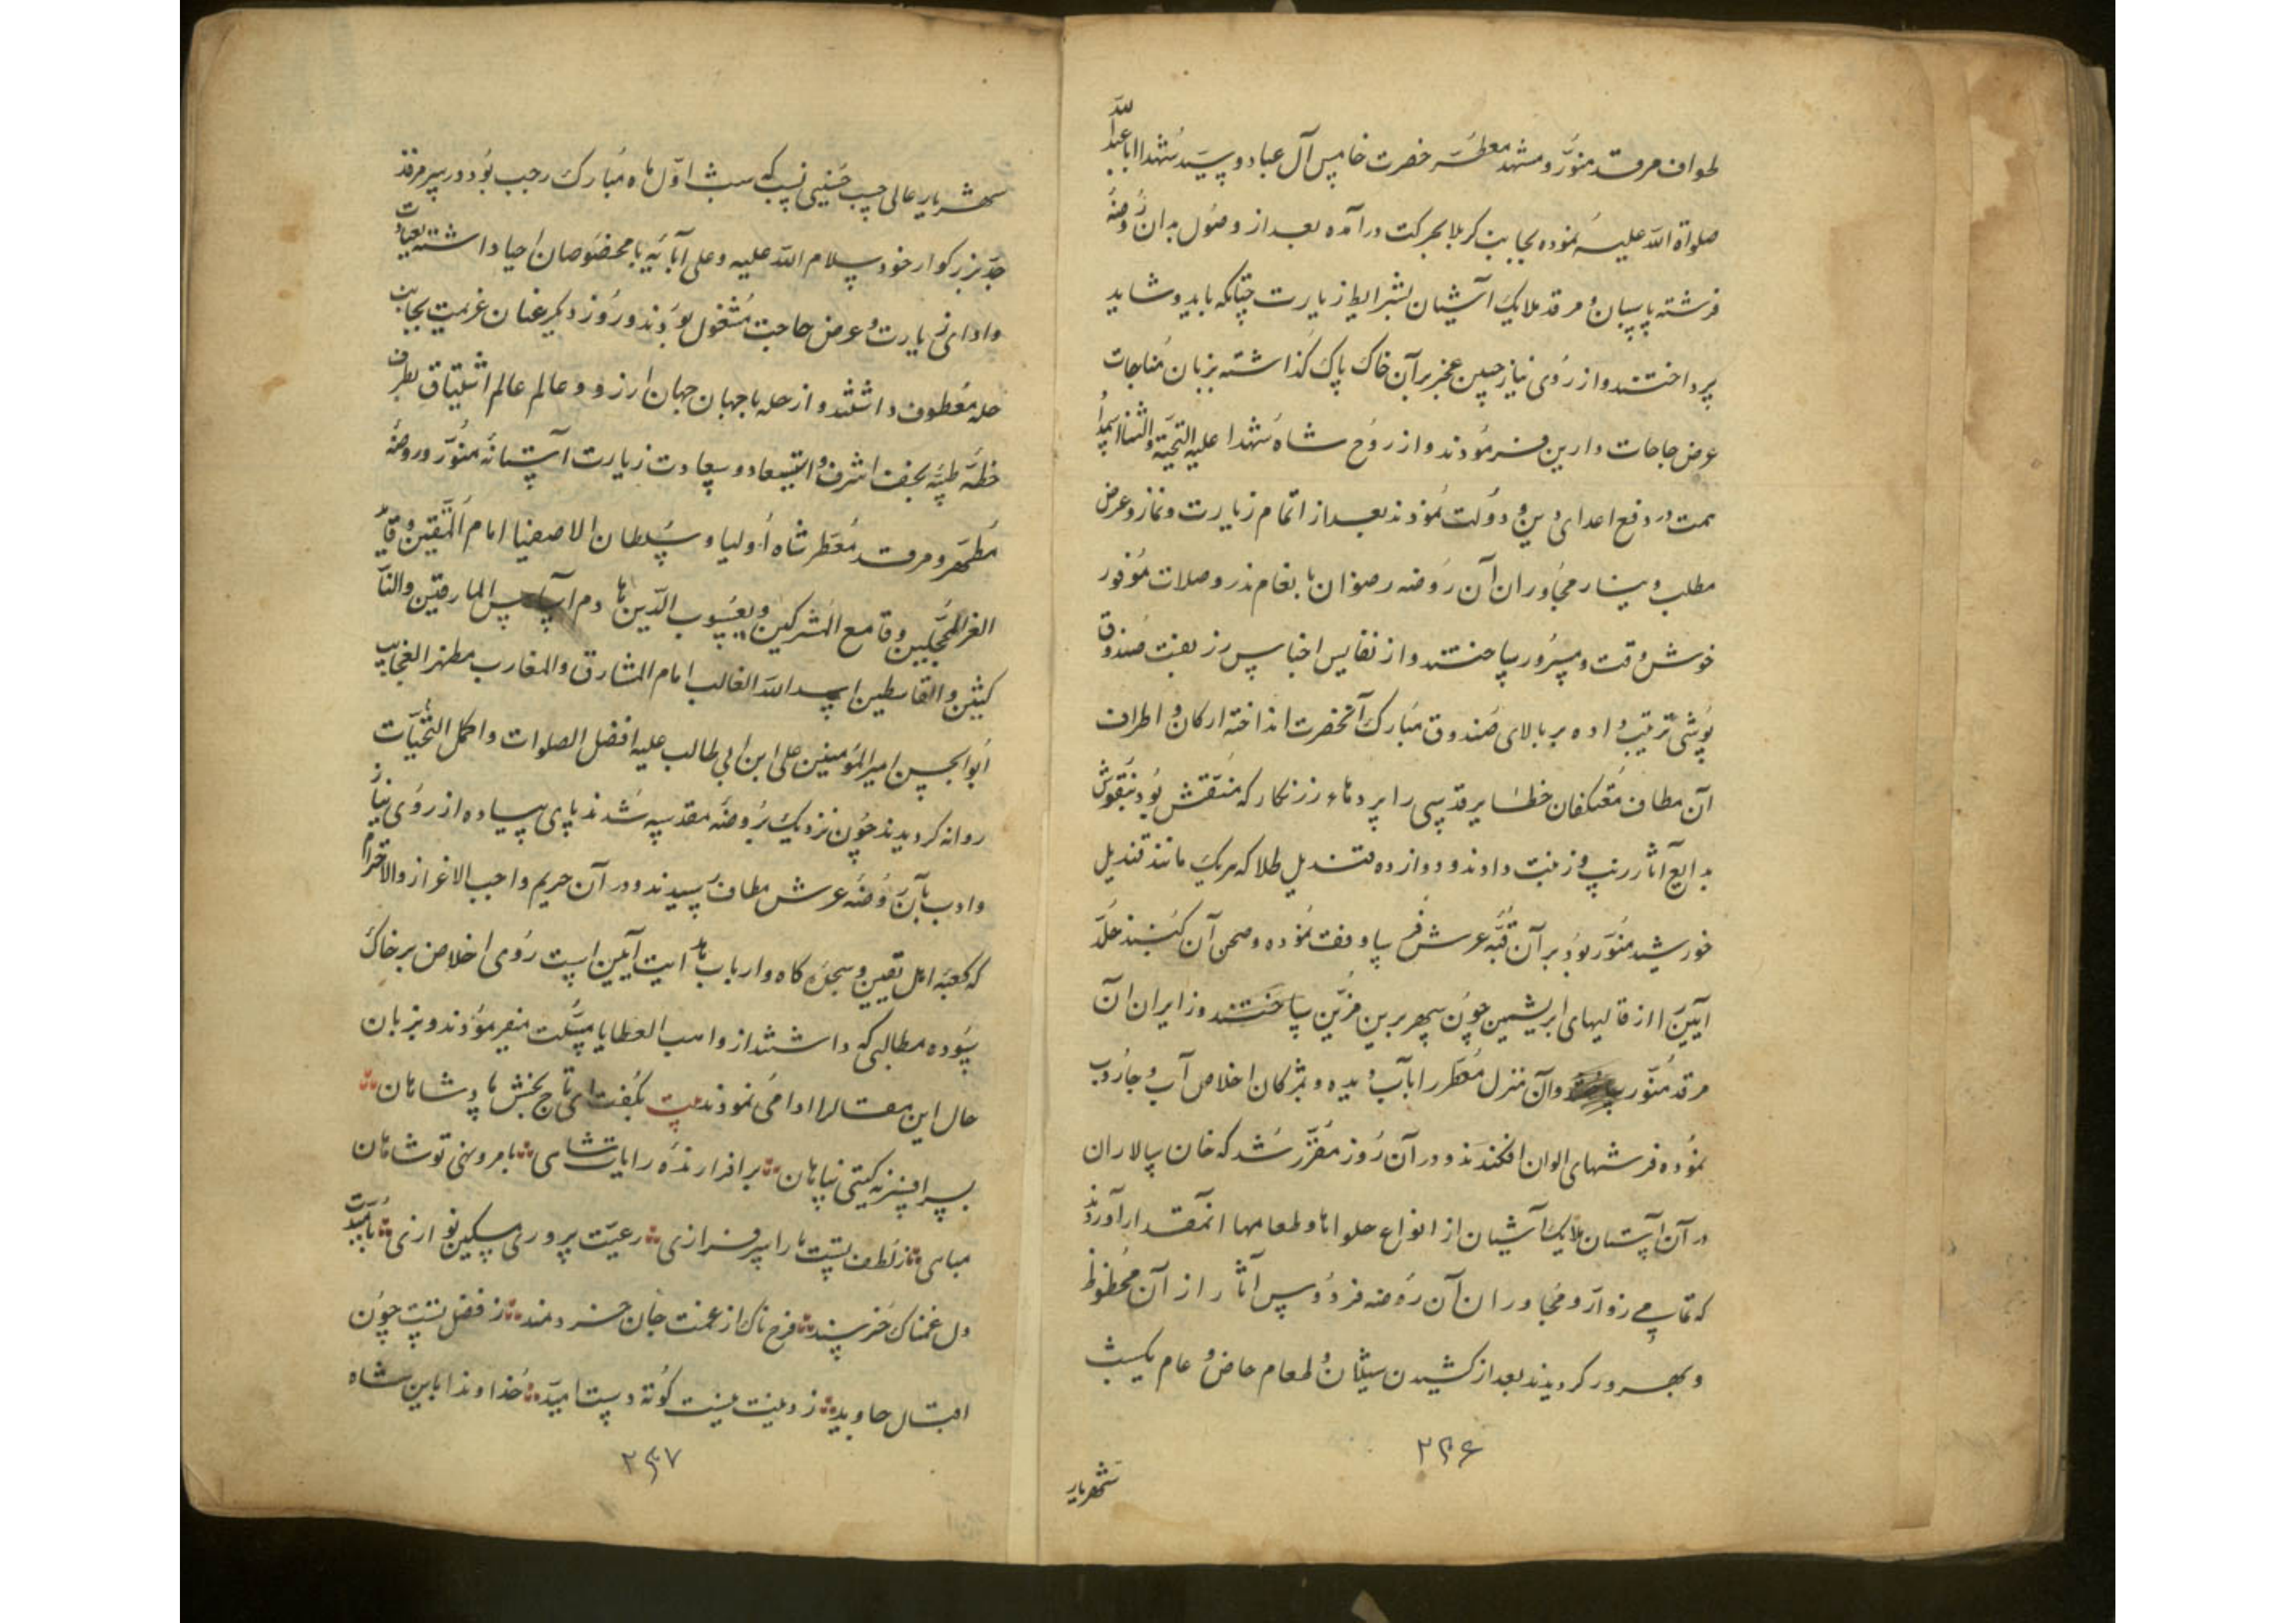 طواف مرقد منور و مشهد معطر حضرت خامس آل عبا و سید شهدا ابا عبدالله
صلواة الله علیه نموده بجانب کربلا بحرکت درآمده بعد از وصول بدان روضهٔ
فرشته پاسبان و مرقد ملایک آشیان بشرایط زیارت چنانکه باید و شاید
پرداختند و از روی نیاز جبین عجز بر آن خاک پاک گذاشته بزبان مناجات
عرض حاجات دارین فرمودند و از روح شاه شهدا علیه التحیة والثنا استمداد
همت در دفع اعدای دین و دولت نمودند بعد از اتمام زیارت و نماز و عرض
مطلب و نیاز مجاوران آن روضه رضوان بانعام نذر و صلات موفور
خوش وقت و مسرور ساختند و از نفایس اجناس زربفت صندوق
پوشی ترتیب داده بر بالای صندوق مبارک آنحضرت انداخته ارکان و اطراف
آن مطاف معتکفان خطایر قدسی را پردهاء زرنگار که منقش بود بنقوش
بدایع آثار زیب و زینت دادند و دوازده قندیل طلا که هریک مانند قندیل
خورشید منور بود بر آن قبه عرش فرسا وقف نموده و صحن آن گنبد خلد
آیین را از قالیهای ابریشمین چون سپهر برین مزین ساختند و زایران آن
مرقد منور وآن منزل معطر را بآب دیده و بمژگان اخلاص آب و جاروب
نموده فرشهای الوان افکندند و در آن روز مقرر شد که خان سالاران
در آن آستان ملایک آشیان از انواع حلواها و طعامها آنمقدار آوردند
که تمامی زوار و مجاوران آن روضه فردوس آثار از آن محظوظ
و بهرور گردیدند بعد از کشیدن سیلان و طعام خاص و عام یکشب
۲۴۶
شهریار
شهریار عالی حسب حسینی نسب که شب اول ماه مبارک رجب بود در سر مرقد
جد بزرگوار خود سلام الله علیه و علی آبائه با مخصوصان احیا داشته بعبادت
و ادای زیارت و عرض حاجت مشغول بودند و روز دیگر عنان عزیمت بجانب
حله معطوف داشتند و از حله با جهان جهان ارزو و عالم عالم اشتیاق بطرف
خطه طیبه نجف اشرف و استسعاد و سعادت زیارت آستانه منور و روضه
مطهر و مرقد معطر شاه اولیا و سلطان الاصفیا امام المتقین و قاید
الغر المحجلین و قامع المشرکین و یعسوب الدین هادم اساس المارقین والنا
کثین والقاسطین اسد الله الغالب امام المشارق والمغارب مظهر العجایب
ابو الحسن امیر المؤمنین علی ابن ابی طالب علیه افضل الصلوات و اکمل التحیات
روانه گردیدند چون نزدیک بروضه مقدسه شدند پای پیاده از روی نیاز
و ادب بآن روضه عرش مطاف رسیدند و در آن حریم واجب الاعزاز والاحترام
که کعبه اهل یقین و سجده گاه و ارباب هدایت آیین است روی اخلاص بر خاک
سوده مطالبی که داشتند از واهب العطایا مسئلت میفرمودند و بزبان
حال این مقال را ادا می نمودند بیت بگفت ای تاج بخش پادشاهان
سرافرازنه گیتی پناهان بر افرازنده رایات شاهی بامر و نهی تو شاهان
مباهی ز لطفت پست را سرفرازی رعیت پروری مسکین نوازی بامیدت
دل غمناک خرسند فرح ناک از غمت جان خردمند ز فضل تست چون
اقبال جاوید ز دولت نیست کوته دست امید خداوندا باین شاه
۲۴۷